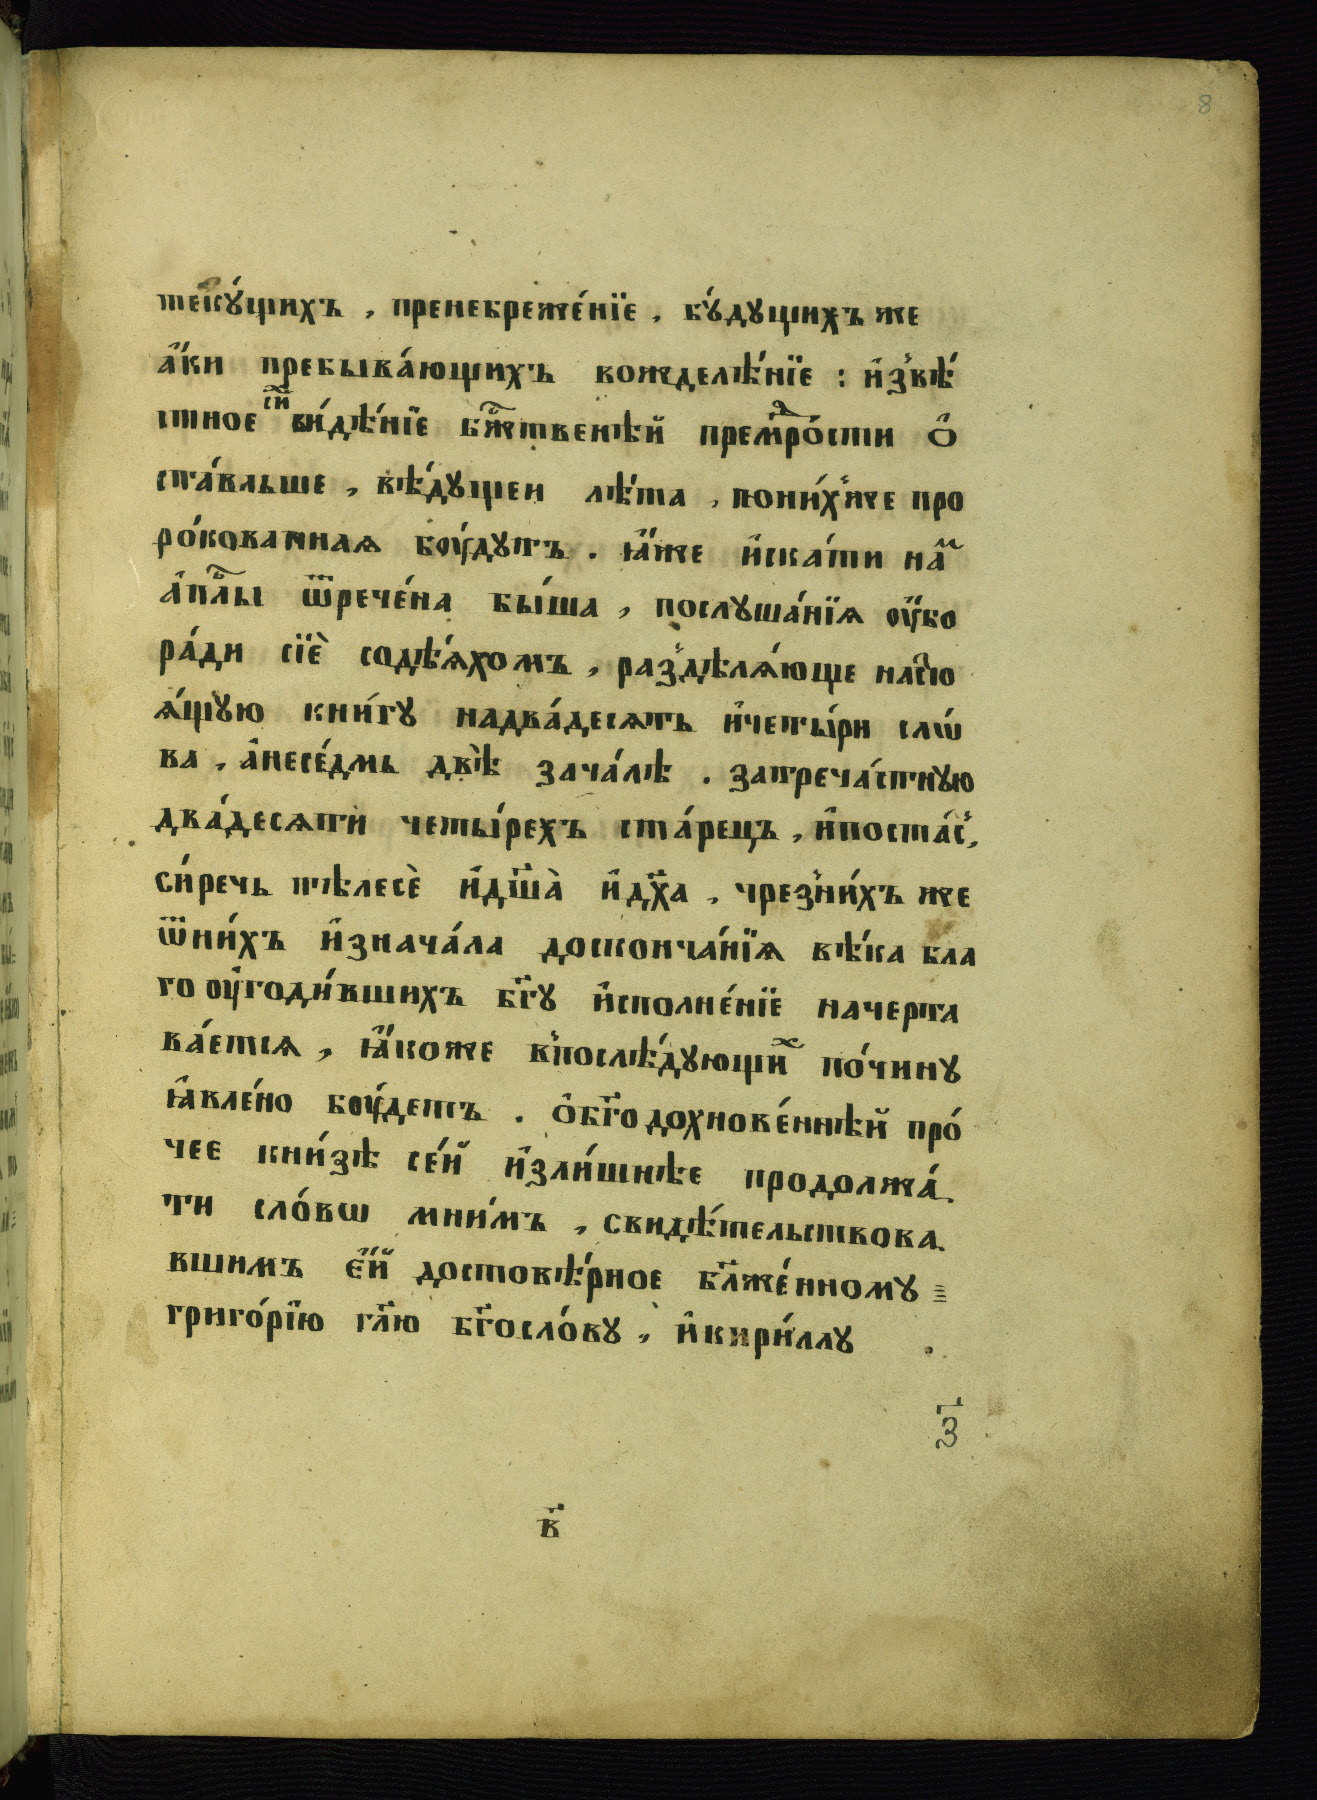 8
текꙋ́щихъ , пренебреже́нїе . бꙋ́дꙋщихъ же
а҆́ки пребыва́ющихъ вожделѣ́нїе : и҆звѣ́
стное сїи̑ ви́дѣ́нїе бж҃твенѣй премⷣро́сти ѻ҆
ста́вльше , вѣ́дꙋщеи лѣ́та , пони́хже про
ро́кованная боу́дꙋтъ . ꙗ҆́же и҆ска́ти наⷨ
а҆пⷭ҇лы ѿрече́на бы́ша , послꙋша́нїѧ оу҆́бо
ра́ди сїѐ содѣ́ѧхомъ , раздѣлѧ́юще насто
ѧ́щꙋю кни́гꙋ надва́десѧть и҆четы́ри сло́
ва , а҆несе́дмь двѣ̀ зача́лѣ . запреча́стнꙋю
два́десѧти четы́рехъ ста́рецъ , и҆поста́с ,
си́речь тѣлесѐ и҆дш҃а̀ и҆дх҃а , чрезни́хъ же
ѿни́хъ и҆знача́ла досконча́нїѧ вѣ́ка бла
гооу҆годи́вшихъ бг҃ꙋ и҆сполне́нїе начерта
ва́етсѧ , ꙗ҆́коже впослѣ́дꙋющиⷯ по́чинꙋ
ꙗ҆вле́но боу́детъ . ѻ҆бг҃одохнове́ннѣй про́
чее кни́зѣ се́й и҆зли́шнѣе продолжа́
ти сло́вѡ мни́мъ , свидѣ́тельствова
вшимъ є҆́й достовѣ́рное бл҃же́нномꙋ
григо́рїю гл҃ю бг҃осло́вꙋ , и҆кири́ллꙋ .
з҃
в҃